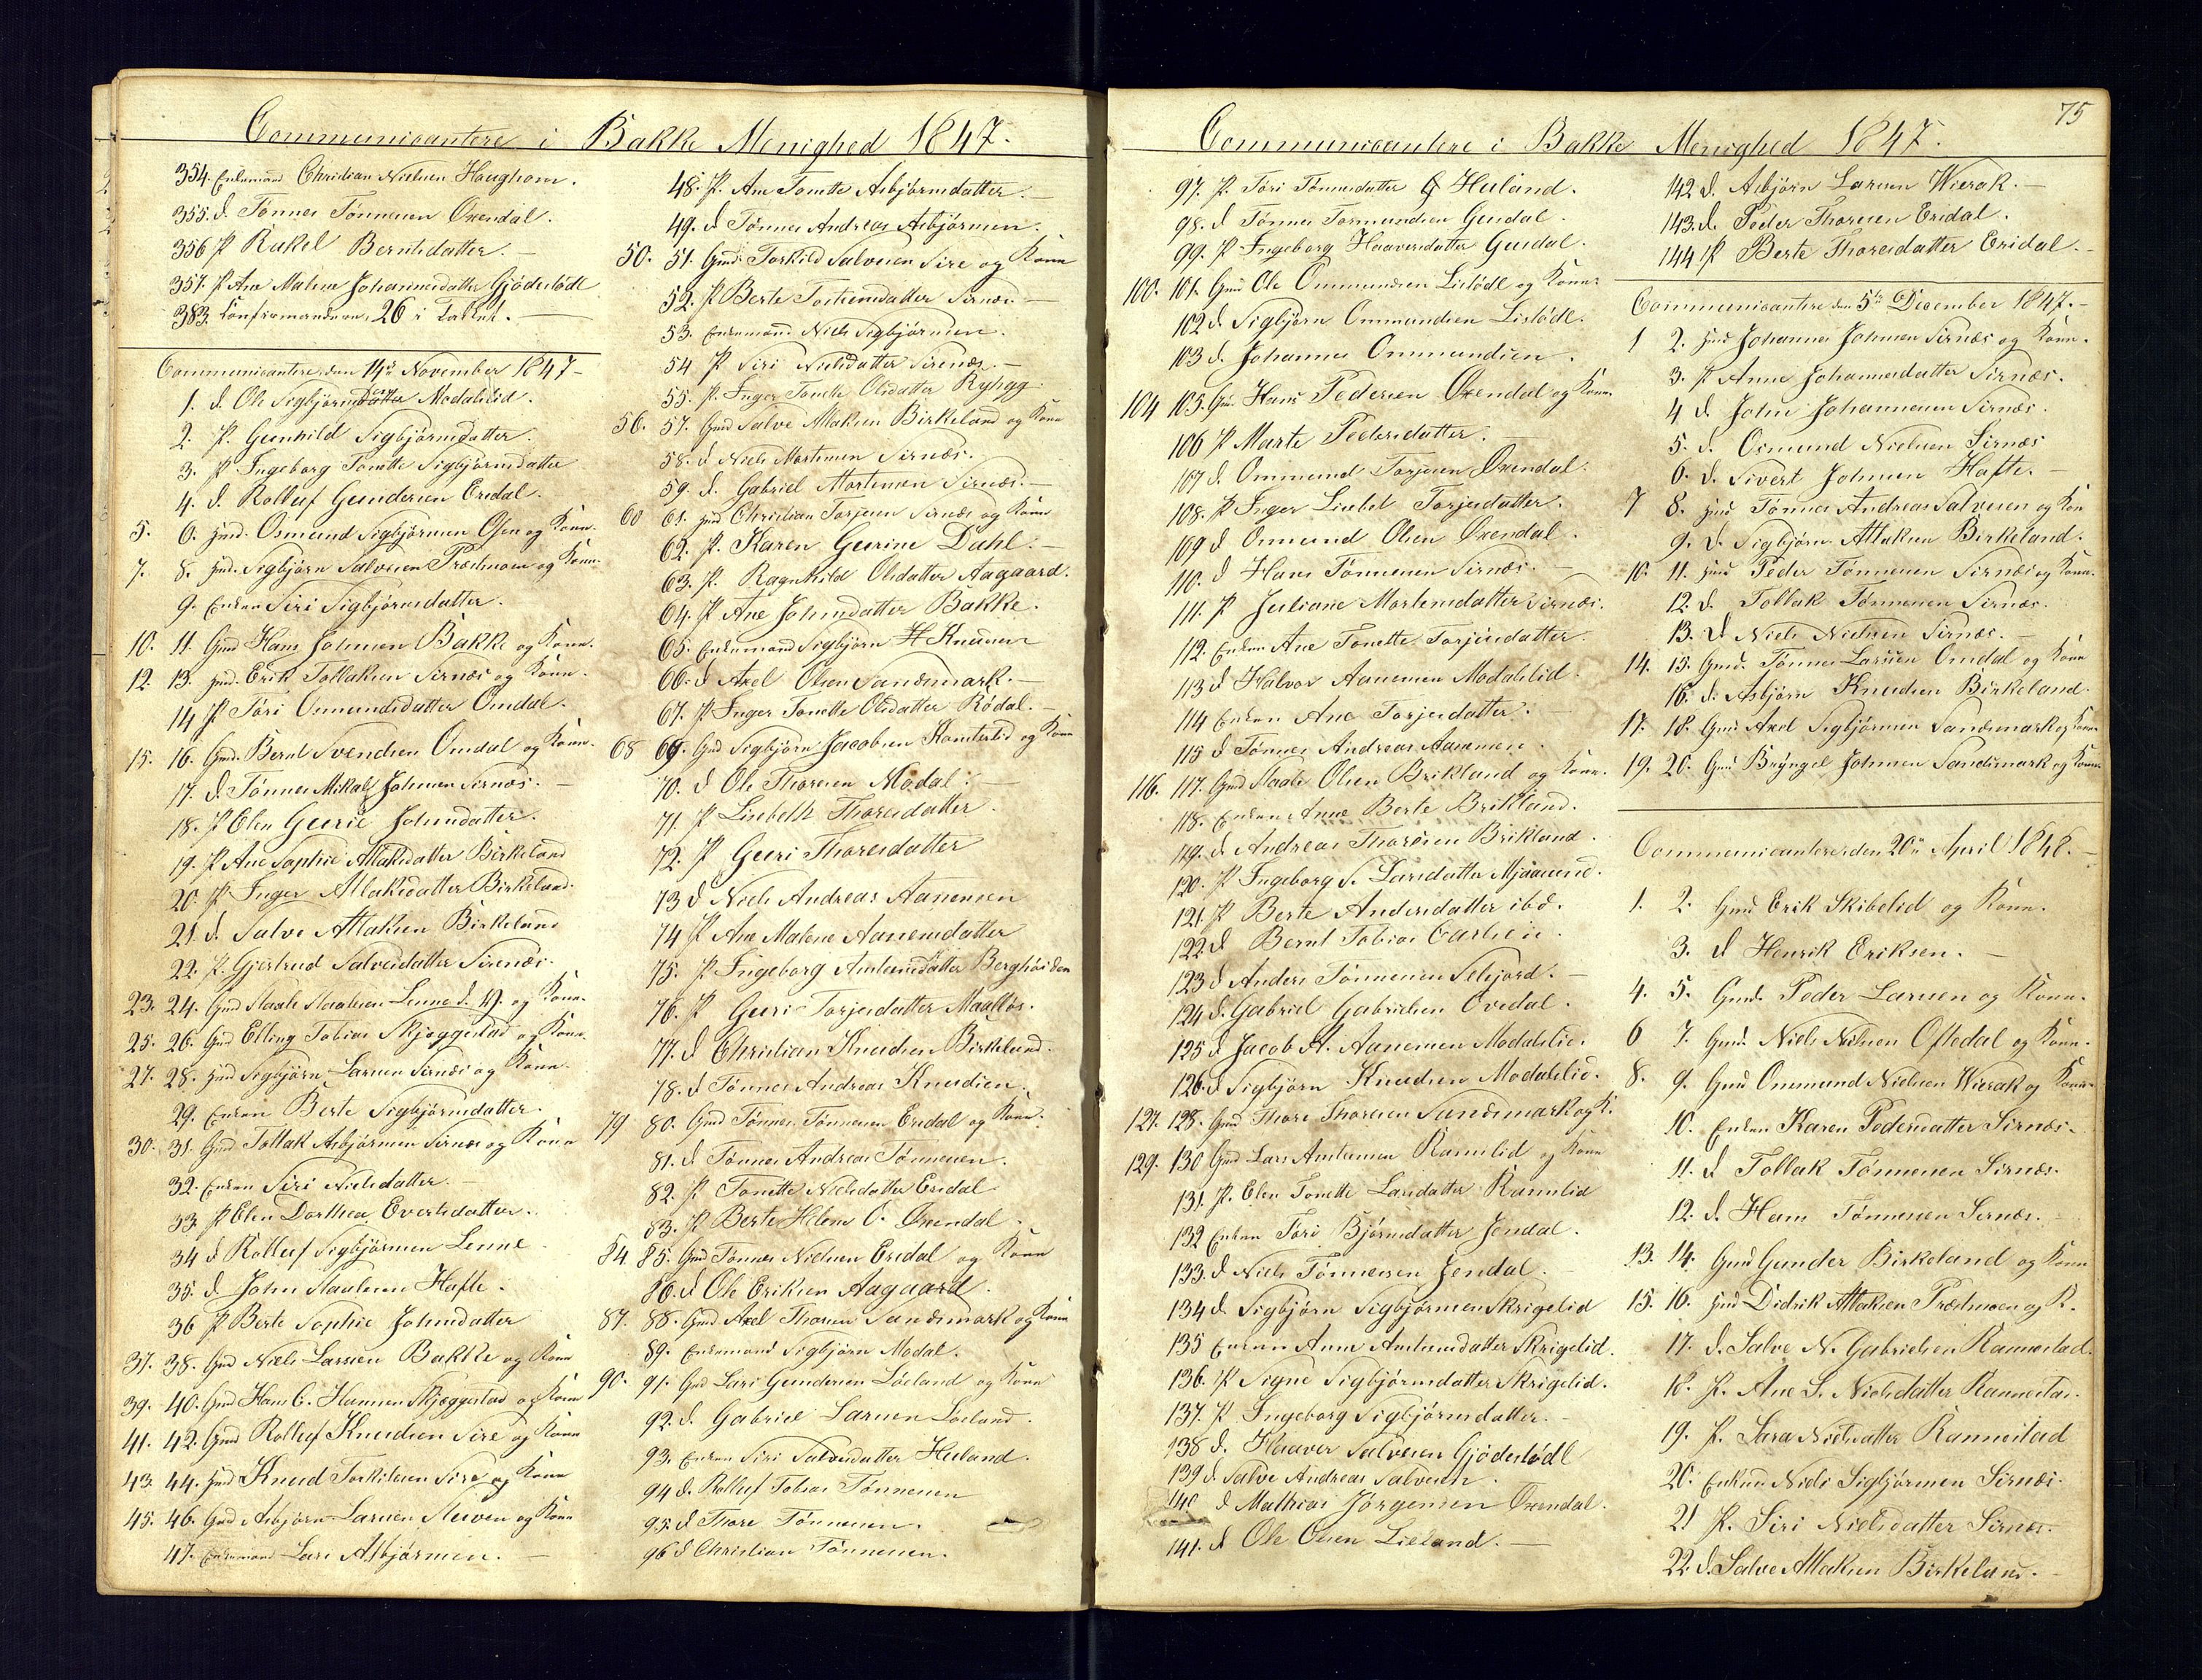 Communicantere i Bakke Menighed 1847.
354. Enkemand Christian Nielsen Haughom.
355. d. Tønnes Tønnesen Øxendal.
356 P Rakel Berntsdatter.
357. P Ane Malene Johannesdatter Gjødestødl
383. Konfirmanderne, 26 i Tallet.
Communicantere den 14de November 1847
1. d. Ole Sigbjørnsen Modalslid.
2. P. Gunhild Sigbjørnsdatter.
3. P. Ingeborg Tonette Sigbjørnsdatter
4. d. Rolluf Gundersen Eredal.
5. 6. Gmd. Osmund Sigbjørnsen Osen og Kone.
7. 8. Gmd. Sigbjørn Salvesen Prestmoen og Kone.
9. Enken Siri Sigbjørnsdatter.
10. 11. Gmd Hans Johnsen Bakke og Kone.
12 13. Gmd. Erik Tollaksen Sirnæs og Kone.
14 P Tøri Osmundsdatter Omdal.
15. 16. Gmd. Bernt Svendsen Omdal og Kone.
17. d. Tønnes Mikal Johnsen Sirnæs.
18. P Elen Gurie Johnsdatter.
19. P Ane Sophie Atlaksdatter Birkeland
20. P Inger Atlaksdatter Birkeland.
21 d. Salve Atlaksen Birkeland
22. P. Gjertrud Salvesdatter Sirenæs.
23. 24. Gmd Staale Staalesen Lenne d. y. og Kone.
25. 26. Gmd Elling Tobias Skjeggestad og Kone.
27. 28. Gmd Sigbjørn Larsen Sirnæs og Kone
29. Enken Berte Sigbjørnsdatter.
30. 31. Gmd Tollak Asbjørnsen Sirnæs og Kone
32. Enken Siri Nielsdatter.
33. P Elen Dorthea Evertsdatter.
34 d Rolluf Sigbjørnsen Lenne
35. d John Staalesen Hafte.
36 P Berte Sophie Johnsdatter
37. 38. Gmd Niels Larsen Bakke og Kone
39. 40. Gmd Hans C. Hansen Skjeggestad og Kone
41. 42. Gmd Rolluf Knudsen Sire og Kone
43. 44. Gmd Knud Torkildsen Sire og Kone
45. 46. Gmd Asbjørn Larsen Steiven og Kone
47. Enkemand Lars Asbjørnsen.
48. P. Ane Tonette Asbjørnsdatter.
49. d Tønnes Andreas Asbjørnsen.
50. 51. Gmd. Torkild Salvesen Sire og Kone
52. P Berte Torkensdatter Sirnæs.
53. Enkemand Niels Sigbjørnsen.
54. P Siri Nielsdatter Sirenæs.
55. P. Inger Tonette Olsdatter
56. 57. Gmd Salve Atlaksen Birkeland og Kone
58. d Niels Mortensen Sirnæs.
59. d. Gabriel Mortensen Sirnæs.
60 61. Gmd Christian Torjesen Sirnæs og Kone
62. P. Karen Geerine Dahl.
63. P. Ragnhild Olsdatter Aagaard.
64. P Ane Johnsdatter Bakke.
65. Enkemand Sigbjørn H Knudsen
66. d Axel Olsen Sandsmark.
67. P Inger Tonette Olsdatter Rødal.
68 69. Gmd Sigbjørn Jacobsen og Kone
70. d Ole Thoresen Modal.
71. P Lisebeth Thoresdatter.
72. P Guri Thoresdatter
73 d Niels Andreas Aanensen
74 P Ane Malene Aanensdatter
75. P Ingeborg Berghöiden
76. P Guri Torjesdatter
77. d Christian Knudsen Birkeland.
78. d Tønnes Andreas Knudsen.
79 80. Gmd Tønnes Tønnesen Eredal og Kone.
81. d Tønnes Andreas Tønnesen.
82. P Tonette Nielsdatter Eredal
83. P Berte Helene O. Øxendal.
84. 85. Gmd Tønnes Nielsen Eredal og Kone
86. d Ole Eriksen Aagaard.
87. 88. Gmd Axel Thorsen Sandsmark og Kone
89. Enkemand Sigbjørn Modal.
90. 91. Gmd Lars Gundersen Løeland og Kone
92. d. Gabriel Larsen Løeland.
93. Enken Siri Salvesdatter Heiland.
94 d. Rolluf Tobias Tønnesen
95. d Thore Tønnesen.
96 d Christian Tønnesen.
75
Communicantere i Bakke Menighed 1847.
97. P. Tøri Tønnesdatter Heiland.
98. d Tønnes Tormundsen Gusdal.
99. P Ingeborg Haaversdatter Gusdal.
100. 101. Gmd Ole Ommundsen Listødl og Kone
102 d. Sigbjørn Ommundsen Listødl.
103 d. Johannes Ommundsen.
104 105. Gm. Hans Pedersen Øxendal og Kone
106 P Marte Pedersdatter.
107 d Ommund Torjesen Øxendal.
108. P Inger Lisebet Torjesdatter.
109 d Ommund Olsen Øxendal.
110. d Hans Tønnesen Sirnæs.
111. P Juliane Mortensdatter Sirnæs.
112. Enken Ane Tonette Torjesdatter.
113 d Halvor Aanensen Modalslid.
114 Enken Ane Torjesdatter.
115 d Tønnes Andreas Aanensen.
116. 117. Gmd Staale Olsen Brikland og Kone.
118. Enken Anne Berte Brikland.
119. d. Andreas Thorsen Brikland.
120. P Ingeborg S. Larsdatter Mjaasund.
121. P Berte Andersdatter ibd.
122 d Bernt Tobias Carlsen.
123 d Anders Tønnesen Selsjord.
124 d. Gabriel Gabrielsen Ovedal.
125 d Jacob A. Aanensen Modalslid.
126. d Sigbjørn Knudsen Modalslid.
127. 128. Gmd Thore Thoresen Sandsmark og K.
129. 130 Gmd Lars Ramslid og Kone
131. P. Elen Tonette Larsdatter Ramslid
132 Enken Tøri Bjørnsdatter Jendal.
133. d Niels Tønnesen Jendal.
134 d. Sigbjørn Sigbjørnsen Skrigelid
135 Enken Anne Skrigelid.
136. P Signe Sigbjørnsdatter Skrigelid.
137. P Ingeborg Sigbjørnsdatter.
138 d. Haaver Salvesen Gjødestødl
139 d. Salve Andreas Salvesen.
140 d Mathias Jørgensen Øxendal.
141. d Ole Olsen Lieland.
142 d. Asbjørn Larsen Wierak.
143. d. Peder Thoresen Eridal.
144 P Berte Thoresdatter Eridal.
Communicantere den 5te December 1847.
1 2. Gmd Johannes Johnsen Sirnæs og Kone.
3. P Anne Johannesdatter Sirnæs.
4 d. John Johannesen Sirnæs.
5. d. Osmund Nielsen Sirnæs
6. d. Sivert Johnsen Hafte.
7 8. Gmd Tønnes Andreas Salvesen og Kone
9. d. Sigbjørn Atlaksen Birkeland.
10. 11. Gmd Peder Tønnesen Sirnæs og Kone.
12. d. Tollak Tønnesen Sirnæs.
13. d Niels Nielsen Sirnæs.
14. 15. Gmd. Tønnes Larsen Omdal og Kone
16. d. Asbjørn Knudsen Birkeland.
17. 18. Gmd Axel Sigbjørnsen Sandsmark og Kone
19. 20. Gmd Bryngel Johnsen Sandsmark og Kone
Communicantere den 20de April 1848.
1. 2. Gmd Erik Skibelid og Kone.
3. d Henrik Eriksen.
4. 5. Gmd. Peder Larsen og Kone.
6 7. Gmd. Niels Nielsen Oftedal og Kone.
8. 9. Gmd Ommund Nielsen Wierak og Kone
10. Enken Karen Pedersdatter Sirnæs.
11. d Tollak Tønnesen Sirnæs.
12. d. Hans Tønnesen Sirnæs.
13. 14. Gmd Gunder Birkeland og Kone
15. 16. Gmd Didrik Atlaksen Præstmoen og K.
17. d. Salve N. Gabrielsen Rannestad.
18. P. Ane S. Nielsdatter Rannestad.
19. P. Sara Nielsdatter Rannestad
20. Enkem Niels Sigbjørnsen Sirnæs.
21 P. Siri Nielsdatter Sirnæs.
22. d. Salve Atlaksen Birkeland.